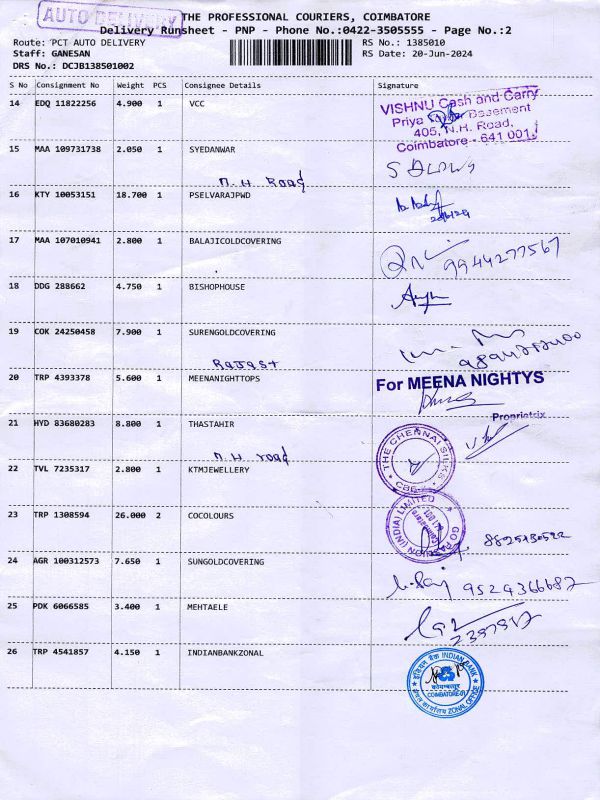 AUTO DELIVERY
THE PROFESSIONAL COURIERS, COIMBATORE
Delivery Runsheet - PNP - Phone No.:0422-3505555 - Page No.:2
Route: PCT AUTO DELIVERY
RS No.: 1385010
Staff: GANESAN
RS Date: 20-Jun-2024
DRS No.: DCJB138501002
S No Consignment No Weight PCS Consignee Details Signature
14 EDQ 11822256 4.900 1 VCC
VISHNU Cash and Carry
Priya Basement
405, N.H. Road,
Coimbatore - 641 001
15 MAA 109731738 2.050 1 SYEDANWAR
N.H Road
16 KTY 10053151 18.700 1 PSELVARAJPWD
17 MAA 107010941 2.800 1 BALAJICOLDCOVERING
9944277567
18 DDG 288662 4.750 1 BISHOPHOUSE
19 COK 24250458 7.900 1 SURENGOLDCOVERING
20 TRP 4393378 5.600 1 MEENANIGHTTOPS
For MEENA NIGHTYS
Proprietrix
21 HYD 83680283 8.800 1 THASTAHIR
THE CHENNAI SILKS
N.H road
22 TVL 7235317 2.800 1 KTMJEWELLERY
23 TRP 1308594 26.000 2 COCOLOURS
(INDIA) LIMITED
24 AGR 100312573 7.650 1 SUNGOLDCOVERING
9524366687
25 PDK 6066585 3.400 1 MEHTAELE
26 TRP 4541857 4.150 1 INDIANBANKZONAL
इंडियन बैंक INDIAN BANK
कोयम्बत्तूर
COIMBATORE-01
ZONAL OFFICE